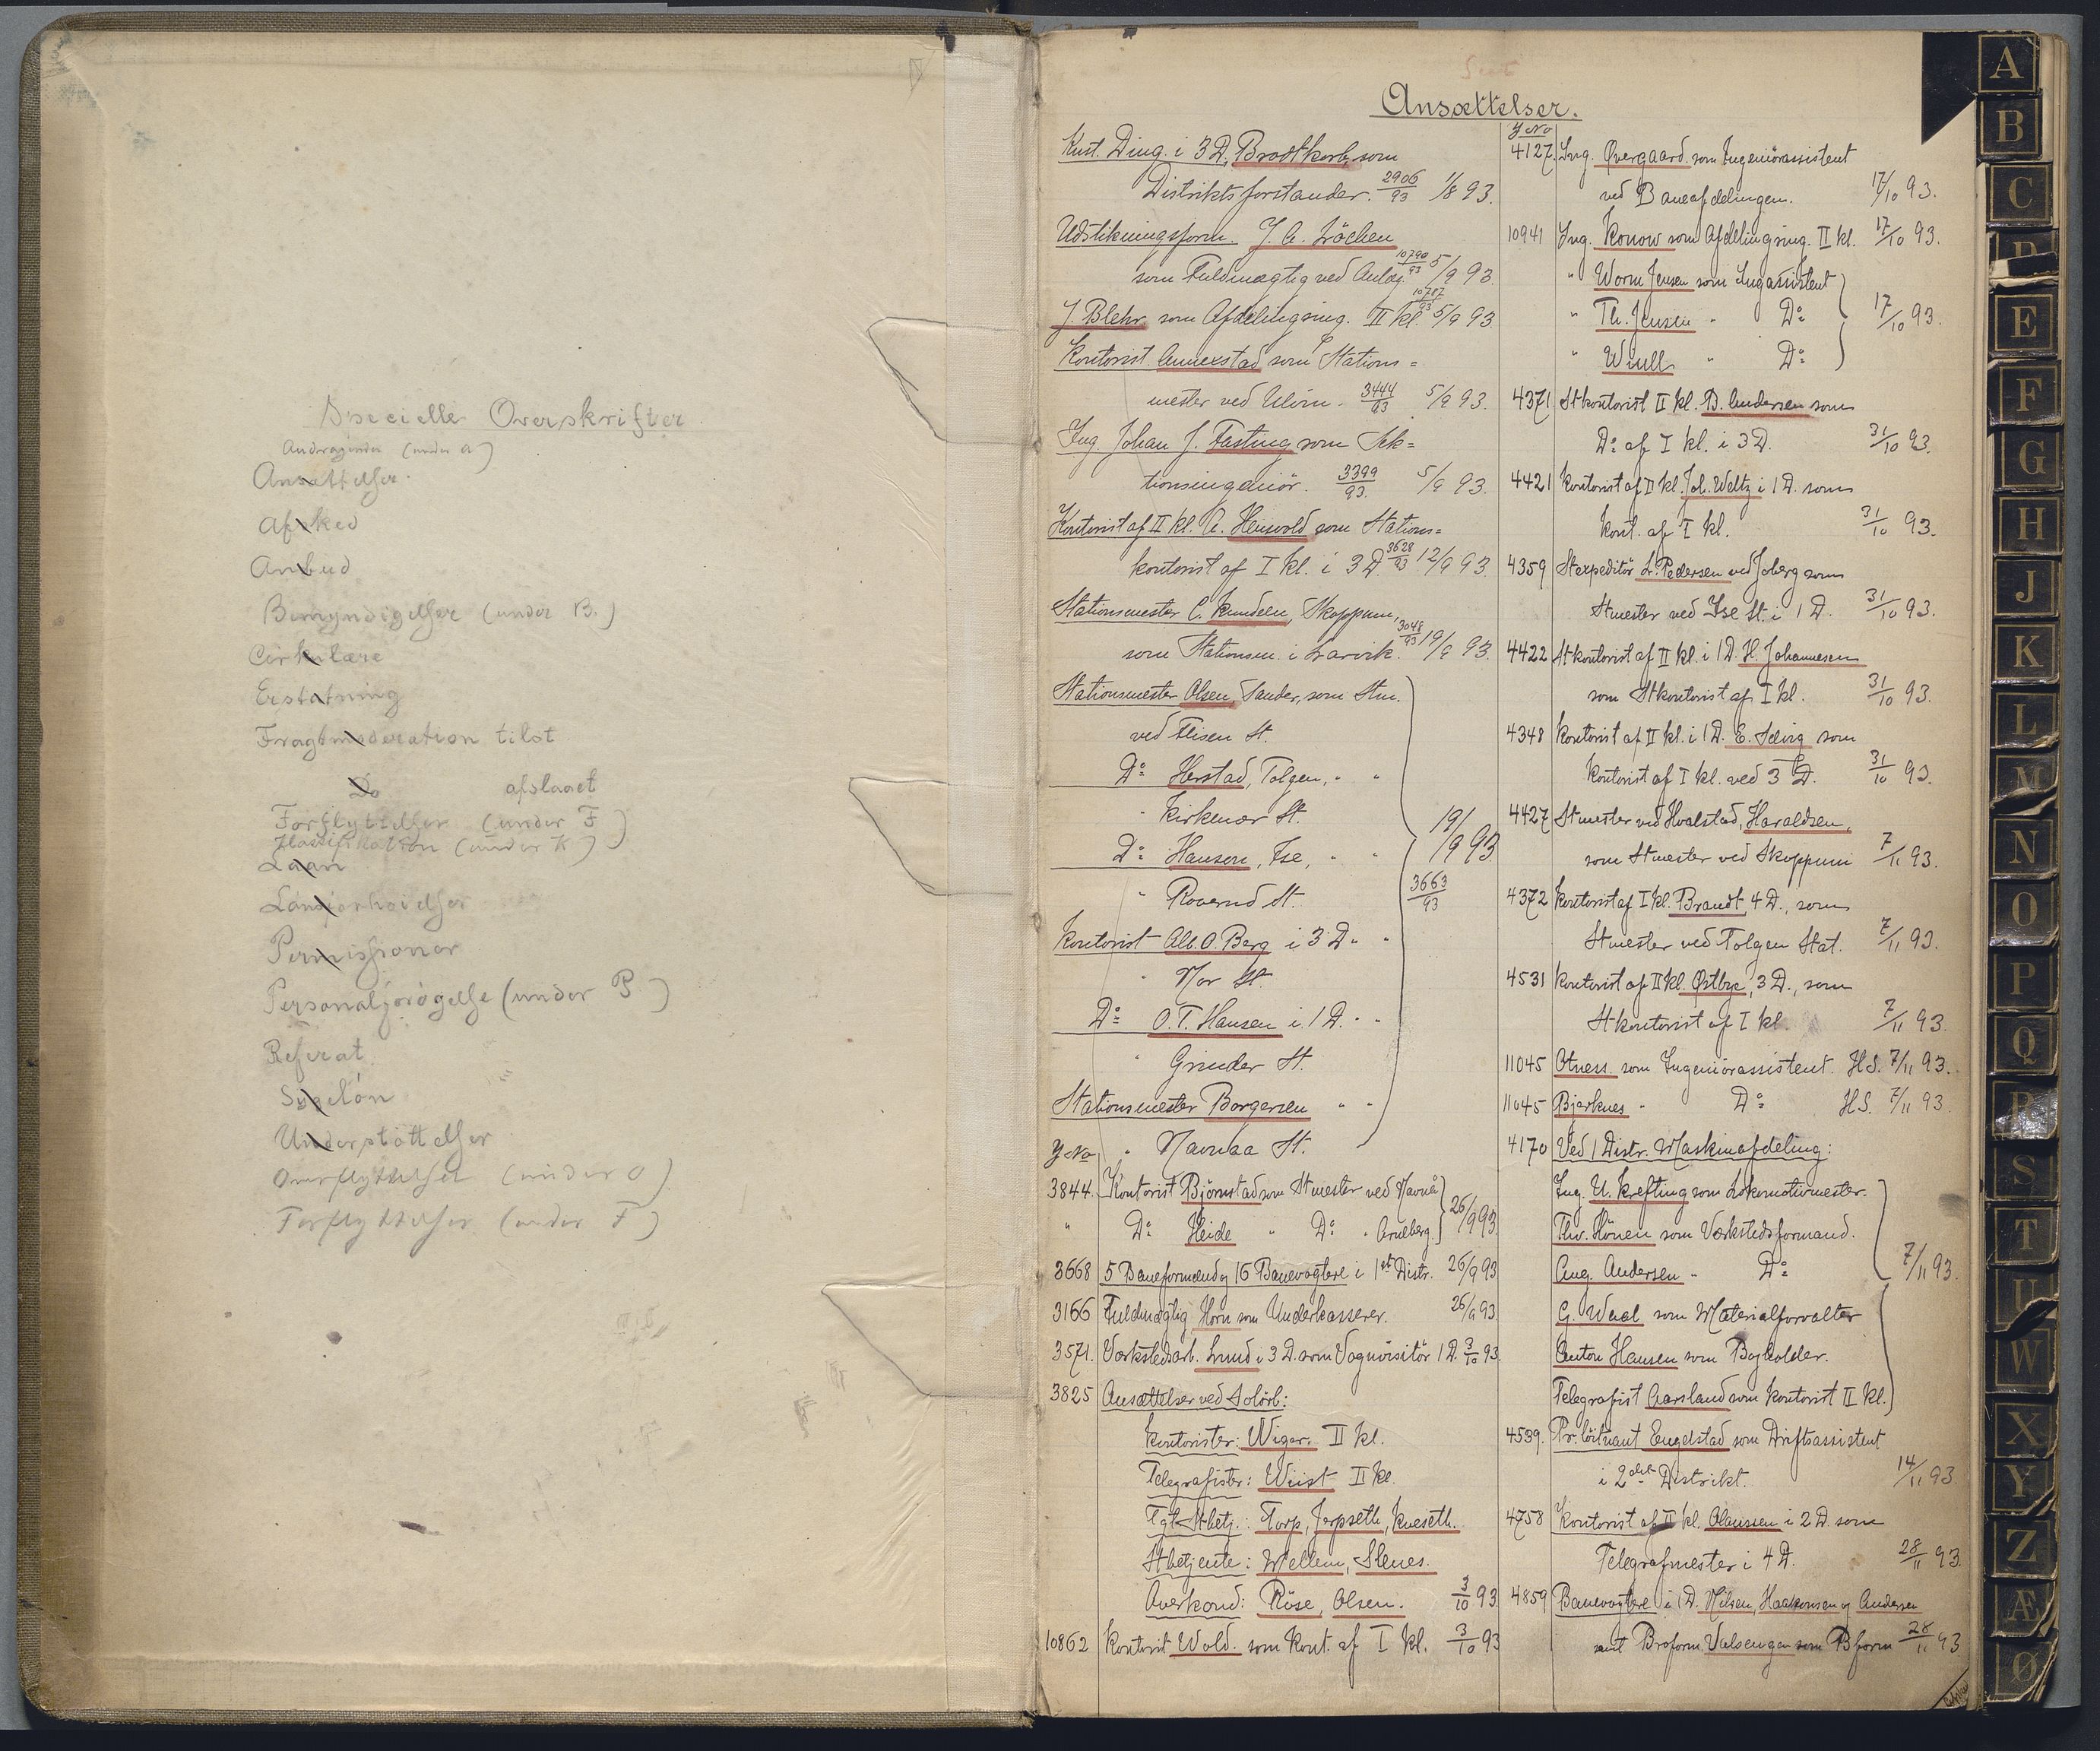 Specielle Overskrifter
Andragender (under A)
Ansættelser.
Afsked
Anbud
Bemyndigelser (under B.)
Cirkulære
Erstatning
Fragtmoderation tilst
Do afslaaet
Forflyttelser (under F)
Klassifikation (under K)
Laan
Lønsforhøielser
Permissioner
Personalforøgelse (under P)
Referat
Sygeløn
Understøttelser
Overflyttelser (under O)
Forflyttelser (under F)
Ansættelser.
Kust. Ding. i 3 D, Brodtkorb, som
Distriktsforstander. 2906/93 1/8 93.
Udstikningsform. J. A. Löchen
som Fuldmægtig ved Anlæg 10790/93 5/9 93.
J. Blehr som Afdelingsing. II kl. 10787/93 5/9 93
Kontorist Annexstad som Stations=
mester ved Ulvin. 3444/93 5/9 93.
Ing. Johan J. Fasting som Sek=
tionsingeniør. 3399/93. 5/9 93.
Kontorist af II kl. A. Hensvold som Stations=
kontorist af I kl. i 3 D. 3628/93 12/9 93.
Stationsmester C. Knudsen, Skoppum,
som Stationsm. i Larvik. 3048/93 19/9 93.
Stationsmester Olsen, Sander, som Stm.
ved Flisen St.
Do Herstad, Tolgen, " "
" Kirkenær St.
Do Hansen, Ise, " " 19/9 93
" Roverud St. 3663/93
Kontorist Alb. O. Berg i 3 D " "
" Nor St.
Do O. T. Hansen i 1 D. " "
" Grinder St.
Stationsmester Borgersen " "
J No " Navnaa St.
3844. Kontorist Björnstad som Stmester ved Navnå
" Do Heide " Do " Arneberg. 26/9 93.
3668 5 Baneformænd og 16 Banevogtere i 1ste Distr. 26/9 93
3166 Fuldmægtig Horn som Underkasserer. 26/9 93.
3571. Værkstedsarb. Lund i 3 D. som Vognvisitör 1 D. 3/10 93.
3825 Ansættelser ved Solörb:
Kontorister: Wiger. II kl.
Telegrafister: Wiist II kl.
Tgf.Stbetj.: Torp, Jerpseth, Kveseth.
Stbetjente: Mellem, Stenes.
Overkond: Röse, Olsen. 3/10 93
10862 Kontorist Wold. som Kont. af I kl. 3/10 93
J No
4127. Ing. Øvergaard. som Ingeniörassistent
ved Baneafdelingen. 17/10 93.
10941 Ing. Konow som Afdelingsing. II kl. 17/10 93.
" Worm Jensen som Ingassistent
" Th. Jensen " Do 17/10 93.
" Wiull " Do
4371 Stkontorist II kl. B. Andersen som
Do af I kl. i 3 D. 31/10 93.
4421 Kontorist af II kl. Joh. Weltz i 1 D. som
Kont. af I kl. 31/10 93.
4359 Stexpeditör L. Pedersen ved Joberg som
Stmester ved Ise St. i 1 D. 31/10 93.
4422 Stkontorist af II kl. i 1 D. H. Johannesen
som Stkontorist af I kl. 31/10 93.
4348 Kontorist af II kl. i 1 D. E. Selvig som
Kontorist af I kl. ved 3 D. 31/10 93.
4427 Stmester ved Hvalstad, Haraldsen,
som Stmester ved Skoppum 7/11 93.
4372 Kontorist af I kl. Brandt, 4 D., som
Stmester ved Tolgen Stat. 7/11 93.
4531 Kontorist af II kl. Østbye, 3 D., som
Stkontorist af I kl. 7/11 93.
11045 Otness. som Ingeniörassistent. HS. 7/11 93.
11045 Bjerknes " Do HS. 7/11 93
4170 Ved 1 Distr. Maskinafdeling:
Ing. U. Krefting som Lokomotivmester.
Thv. Hönen som Værkstedsformand.
Aug. Andersen " Do 7/11 93.
G. Waal som Materialforvalter
Anton Hansen som Bogholder.
Telegrafist Aarsland som Kontorist II kl.
4539. Pr.löitnant Engelstad som Driftsassistent
i 2det Distrikt. 14/11 93.
4758 Kontorist af II kl. Olaussen i 2 D. som
Telegrafmester i 4 D. 28/11 93.
4859 Banevogtere i 1 D. Nilsen, Haakonsen og Andersen
samt Broform Valsengen som Bform 28/11 93
A
B
C
D
E
F
G
H
J
K
L
M
N
O
P
Q
R
S
T
U
W
X
Y
Z
Æ
Ø